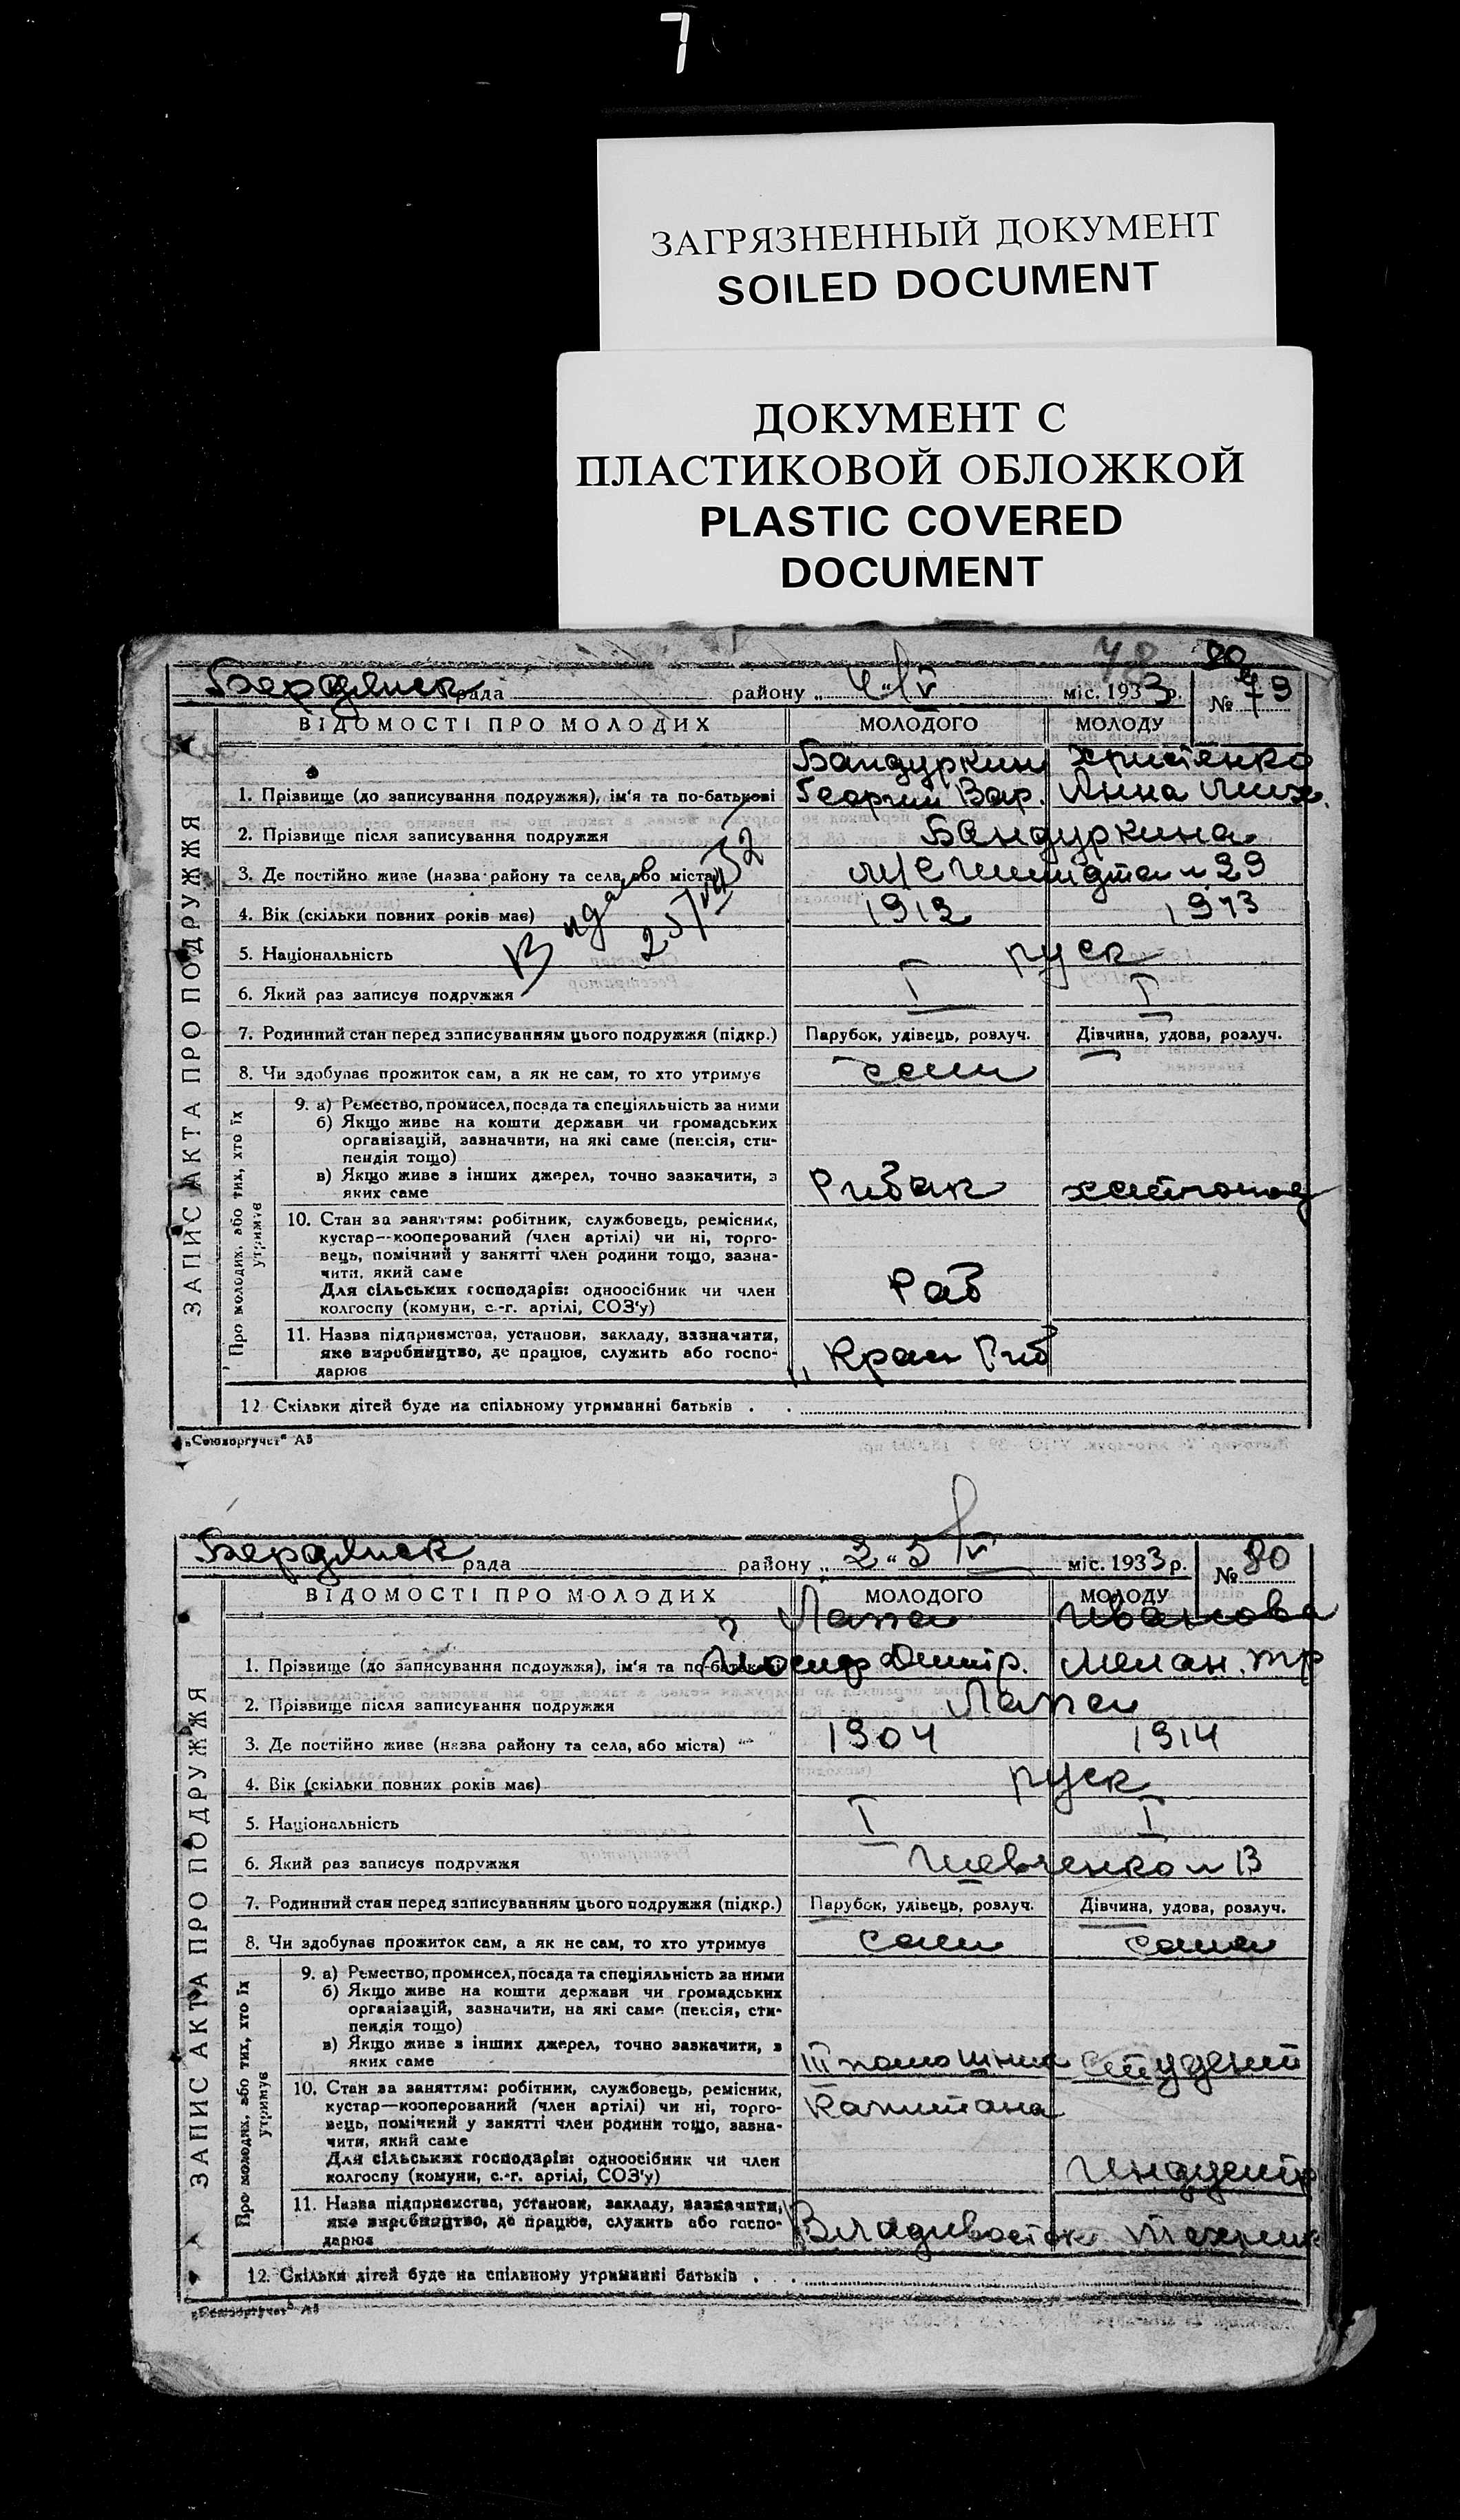 7
ЗАГРЯЗНЕННЫЙ ДОКУМЕНТ
SOILED DOCUMENT
ДОКУМЕНТ С
ПЛАСТИКОВОЙ ОБЛОЖКОЙ
PLASTIC COVERED
DOCUMENT
Бердянск рада району „ “ V міс. 1933 р. № 79
ВІДОМОСТІ ПРО МОЛОДИХ МОЛОДОГО МОЛОДУ
Бандуркин Христенко
1. Прізвище (до записування подружжя), ім'я та по-батькові Георгий Вар. Анна Мих.
2. Прізвище після записування подружжя Бандуркина
3. Де постійно живе (назва району та села, або міста) Шмидта 29
4. Вік (скільки повних років має) 1912 1913
5. Національність руск
6. Який раз записує подружжя I I
7. Родинний стан перед записуванням цього подружжя (підкр.) Парубок, удівець, розлуч. Дівчина, удова, розлуч.
8. Чи здобуває прожиток сам, а як не сам, то хто утримує сами
ЗАПИС АКТА ПРО ПОДРУЖЖЯ
Про молодих, або тих, хто їх утримує
9. а) Ремество, промисел, посада та спеціяльність за ними
б) Якщо живе на кошти держави чи громадських
організацій, зазначити, на які саме (пенсія, сти-
пендія тощо)
в) Якщо живе з інших джерел, точно зазначити, з
яких саме Рибак
10. Стан за заняттям: робітник, службовець, ремісник,
кустар—кооперований (член артілі) чи ні, торго-
вець, помічний у занятті член родини тощо, зазна-
чити, який саме Раб
Для сільських господарів: одноосібник чи член
колгоспу (комуни, с.-г. артілі, СОЗ'у)
11. Назва підприємства, установи, закладу, зазначити,
яке виробництво, де працює, служить або госпо- Риб
дарює
12. Скільки дітей буде на спільному утриманні батьків . .
„Союзоргучет“ А5
Бердянск рада району „ 2 “ 5 міс. 1933 р. № 80
ВІДОМОСТІ ПРО МОЛОДИХ МОЛОДОГО МОЛОДУ
Лапа Иванова
1. Прізвище (до записування подружжя), ім'я та по-батькові Иосиф Дмитр. Мелан. Тр
2. Прізвище після записування подружжя Лапа
3. Де постійно живе (назва району та села, або міста) 1904 1914
4. Вік (скільки повних років має) руск
5. Національність I I
6. Який раз записує подружжя Шевченко 13
7. Родинний стан перед записуванням цього подружжя (підкр.) Парубок, удівець, розлуч. Дівчина, удова, розлуч.
8. Чи здобуває прожиток сам, а як не сам, то хто утримує сам сама
ЗАПИС АКТА ПРО ПОДРУЖЖЯ
Про молодих, або тих, хто їх утримує
9. а) Ремество, промисел, посада та спеціяльність за ними
б) Якщо живе на кошти держави чи громадських
організацій, зазначити, на які саме (пенсія, сти-
пендія тощо)
в) Якщо живе з інших джерел, точно зазначити, з
яких саме III помошник Студент
10. Стан за заняттям: робітник, службовець, ремісник,
кустар—кооперований (член артілі) чи ні, торго- Капитана
вець, помічний у занятті член родини тощо, зазна-
чити, який саме
Для сільських господарів: одноосібник чи член
колгоспу (комуни, с.-г. артілі, СОЗ'у) Индустр
11. Назва підприємства, установи, закладу, зазначити,
яке виробництво, де працює, служить або госпо- Владивосток техник
дарює
12. Скільки дітей буде на спільному утриманні батьків . .
„Союзоргучет“ А5